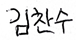 김찬수